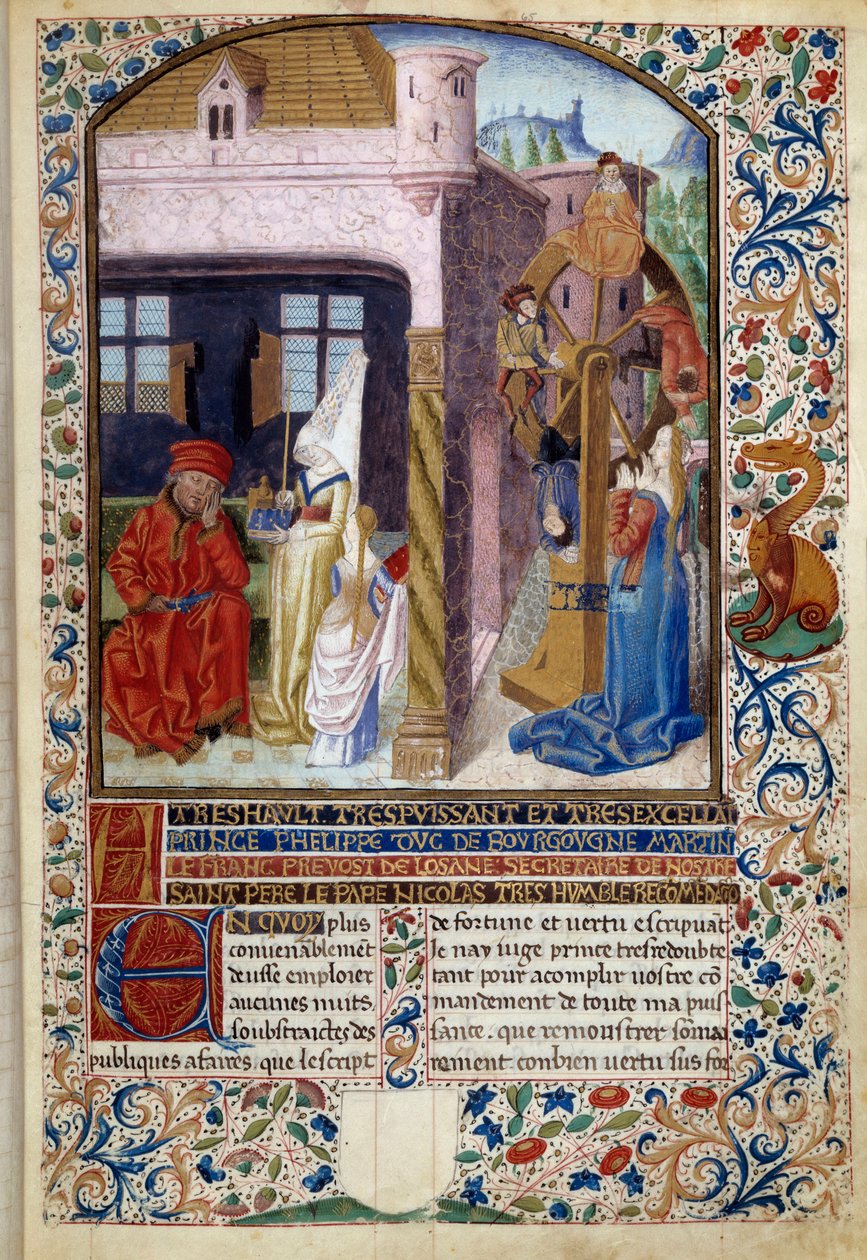 65
A TRESHAULT TRESPUISSANT ET TRESEXCELLAT
PRINCE PHELIPPE DUC DE BOURGOUGNE MARTIN
LE FRANC PREVOST DE LOSANE SECRETAIRE DE NOSTRE
SAINT PERE LE PAPE NICOLAS TRES HUMBLE RECOMEDACO
EN quoy plus
conuenablement
deusse emploier
aucunes nuits,
soubstraictes des
publiques afaires, que lescript
de fortune et vertu escripuāt
Je nay iuge prince tresredoubte
tant pour acomplir uostre cō
mandement de toute ma puis
sance. que remoustrer sōmai
rement conbien vertu sus for